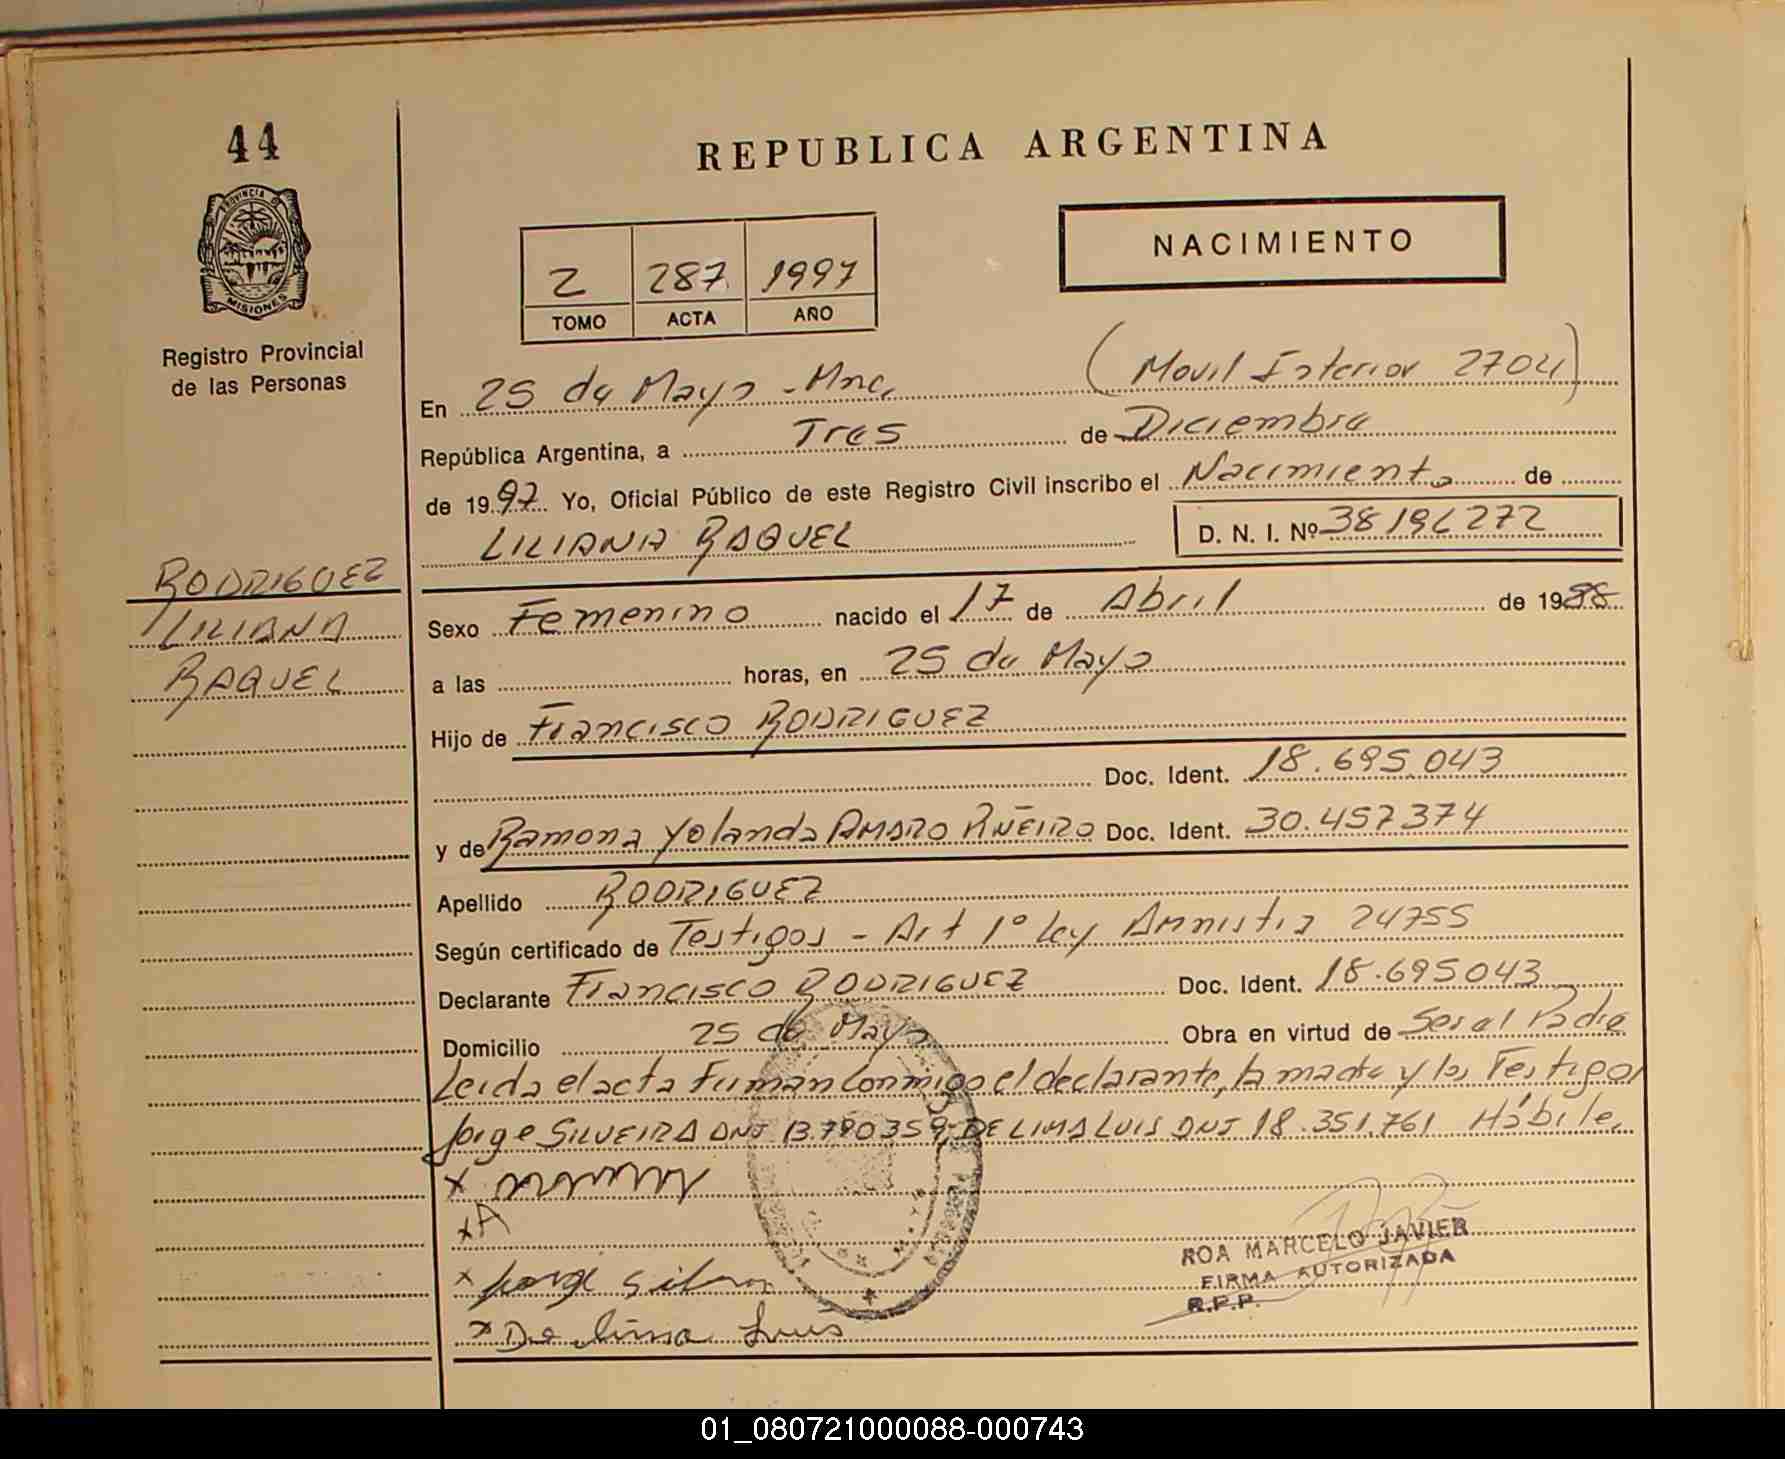 44
REPUBLICA ARGENTINA
PROVINCIA DE
MISIONES
Registro Provincial
de las Personas
2 287 1997
TOMO ACTA AÑO
NACIMIENTO
En 25 de Mayo - Mnes (Movil Interior 2704)
República Argentina, a Tres de Diciembre
de 1997 Yo, Oficial Público de este Registro Civil inscribo el Nacimiento de
LILIANA RAQUEL D. N. I. Nº 38196272
RODRIGUEZ
LILIANA
RAQUEL
Sexo Femenino nacido el 17 de Abril de 19
a las horas, en 25 de Mayo
Hijo de Francisco RODRIGUEZ
Doc. Ident. 18.695.043
y de Ramona Yolanda AMARO PIÑEIRO Doc. Ident. 30.457374
Apellido RODRIGUEZ
Según certificado de Testigos - Art 1º Ley Amnistia 24755
Declarante Francisco RODRIGUEZ Doc. Ident. 18.695043
Domicilio 25 de Mayo Obra en virtud de Ser el Padre
Leida el acta Firman conmigo el declarante, la madre y los Testigos
Jorge SILVEIRA DNI 13.790359, DE LIMA LUIS DNI 18.351.761 Hábiles
x
x A
x Jorge Silvera
x De lima Luis
ROA MARCELO JAVIER
FIRMA AUTORIZADA
R.P.P.
01_080721000088-000743